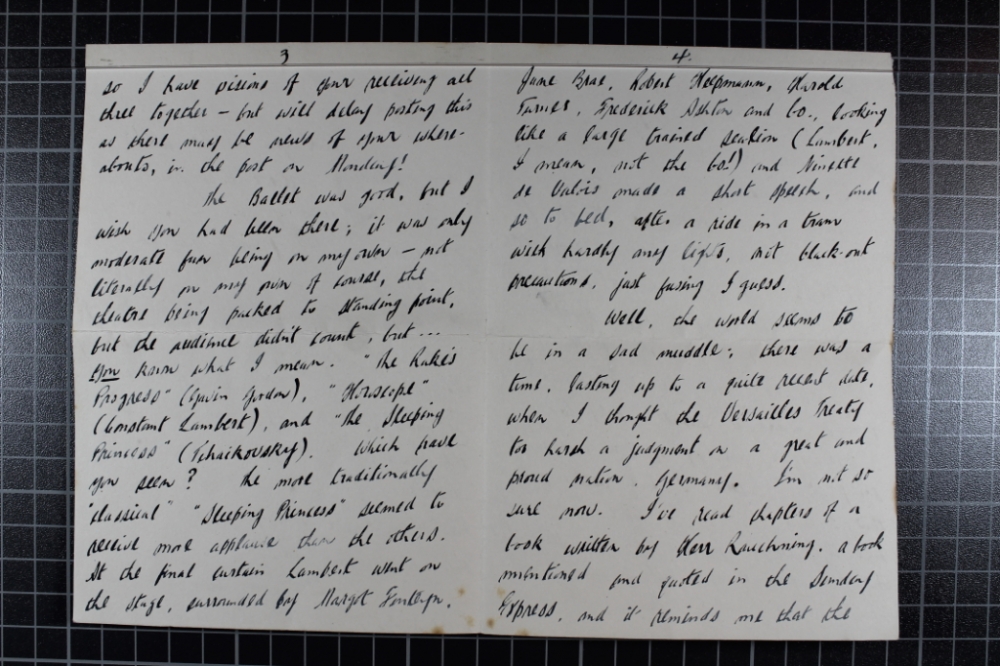 3
so I have visions of your receiving all
three together – but will delay posting this
as there may be news of your where-
abouts, in the post on Monday!
The Ballet was good, but I
wish you had been there; it was only
moderate fun being on my own – not
literally on my own of course, the
theatre being packed to standing point,
but the audience didn't count, but...
you know what I mean. "The Rake's
Progress" (Gavin Gordon), "Horoscope"
(Constant Lambert), and "The Sleeping
Princess" (Tchaikovsky). Which have
you seen? The more traditionally
"classical" "Sleeping Princess" seemed to
receive more applause than the others.
At the final curtain Lambert went on
the stage, surrounded by Margot Fonteyn,
4.
June Brae, Robert Helpmann, Harold
Turner, Frederick Ashton and Co., looking
like a large trained sealion (Lambert,
I mean, not the Co!) and Ninette
de Valois made a short speech, and
so to bed, after a ride in a tram
with hardly any lights, not black-out
precautions, just fusing I guess.
Well, the world seems to
be in a sad muddle; there was a
time, lasting up to a quite recent date,
when I thought the Versailles Treaty
too harsh a judgment on a great and
proud nation, Germany. I'm not so
sure now. I've read chapters of a
book written by Herr Rauschning, a book
mentioned and quoted in the Sunday
Express, and it reminds me that the